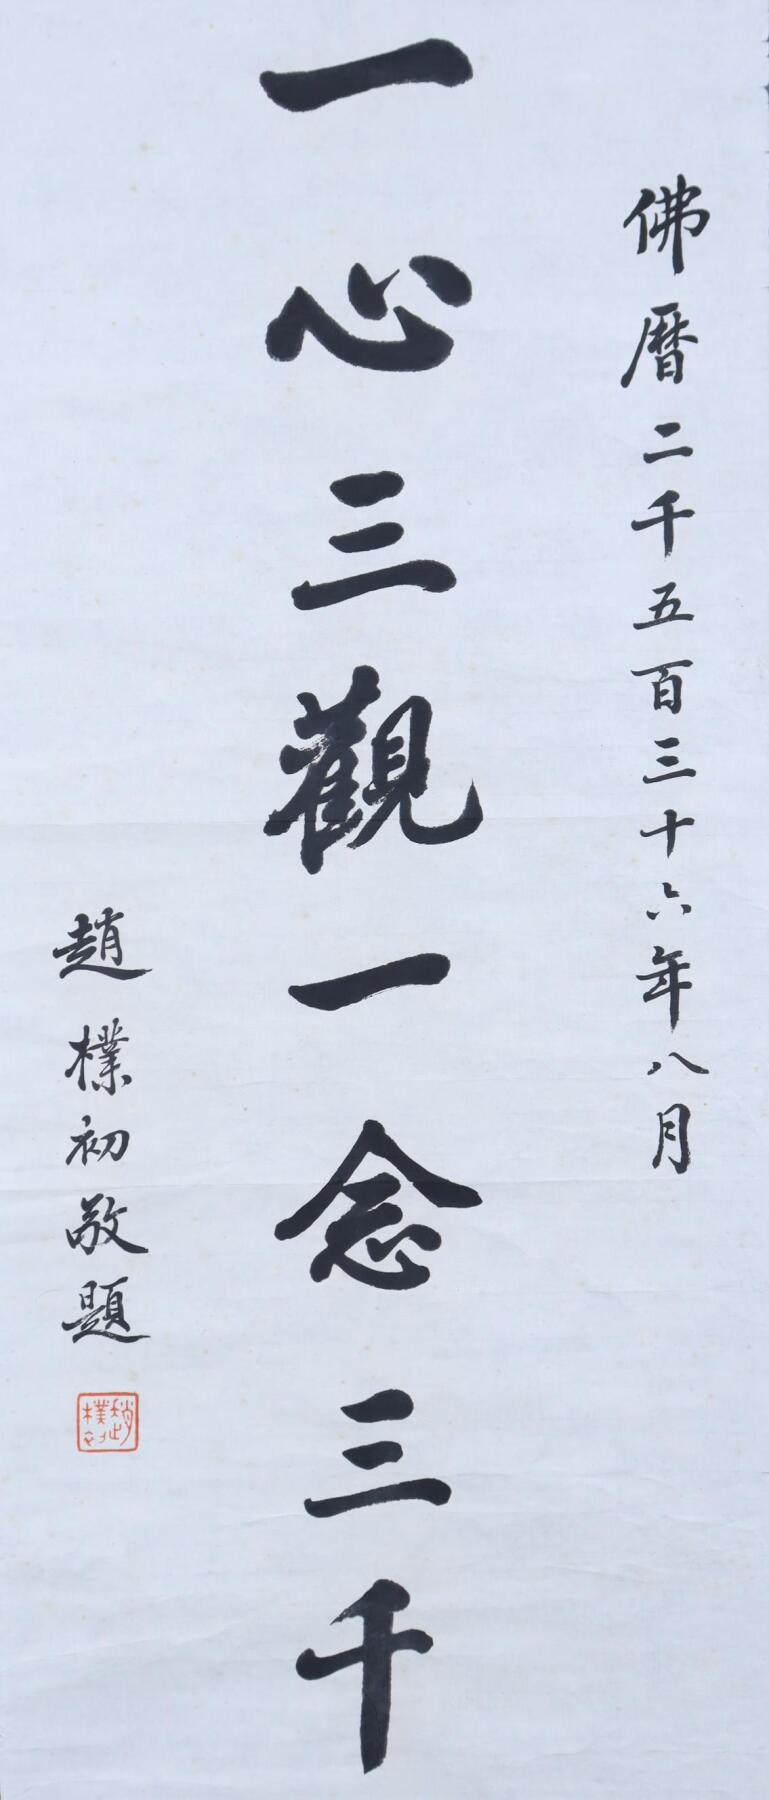 佛曆二千五百三十六年八月
一心三觀一念三千
趙樸初敬題
趙樸初